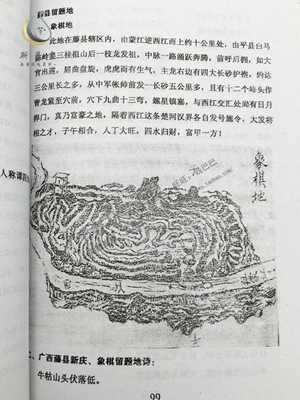 藤县留题地
象棋地
此地在藤县辖区内，由蒙江逆西江而上约十公里处，由平县白马
岭三桂祖山后一枝龙发祖，中脉一路踊跃奔腾，前呼后拥，如大
官出巡，屈曲盘旋，虎虎而有生气。主龙右边有四大长砂护裙，约达
三公里长之多，从中军帐帅前发一长砂五公里多，且有十二个峒头作
青龙紧至六前，穴下九曲十三弯，螺星镇幕，与西江交汇处尚有日月
捍门，真乃富豪之地，隔着西江这条楚河汉界各自发号施令，大发将
相之才，子午相合，人丁大旺，四水归财，富甲一方！
象棋地
二、广西藤县新庆、象棋留题地诗：
牛牯山头伏落低。
99